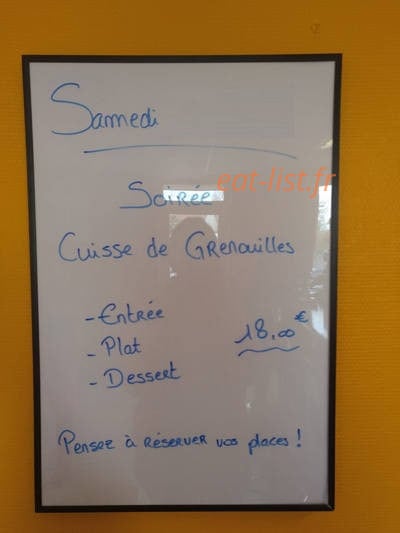 Samedi
eat-list.fr
Soirée
Cuisse de Grenouilles
- Entrée
- Plat
18,00 €
- Dessert
Pensez à réserver vos places !